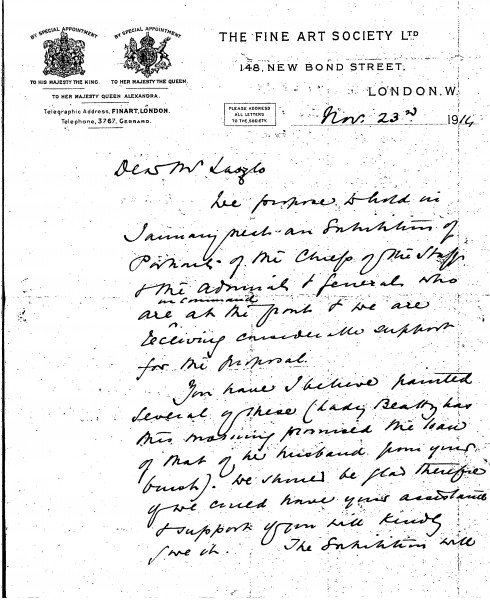 BY SPECIAL APPOINTMENT BY SPECIAL APPOINTMENT
TO HIS MAJESTY THE KING. TO HER MAJESTY THE QUEEN.
TO HER MAJESTY QUEEN ALEXANDRA.
Telegraphic Address, FINART, LONDON.
Telephone, 3767, GERRARD.
THE FINE ART SOCIETY LTD
148, NEW BOND STREET,
LONDON. W.
PLEASE ADDRESS
ALL LETTERS
TO THE SOCIETY
Nov. 23rd 1914
Dear Mr Laszlo
We propose to hold in
January next an Exhibition of
Portraits of the Chiefs of the Staff
& the Admirals & Generals who
in command
are at the front & we are
receiving considerable support
for the proposal.
You have I believe painted
several of these (Lady Beatty has
this morning promised the loan
of that of her husband from your
brush). We should be glad therefore
if we could have your assistance
& support if you will kindly
give it. The Exhibition will